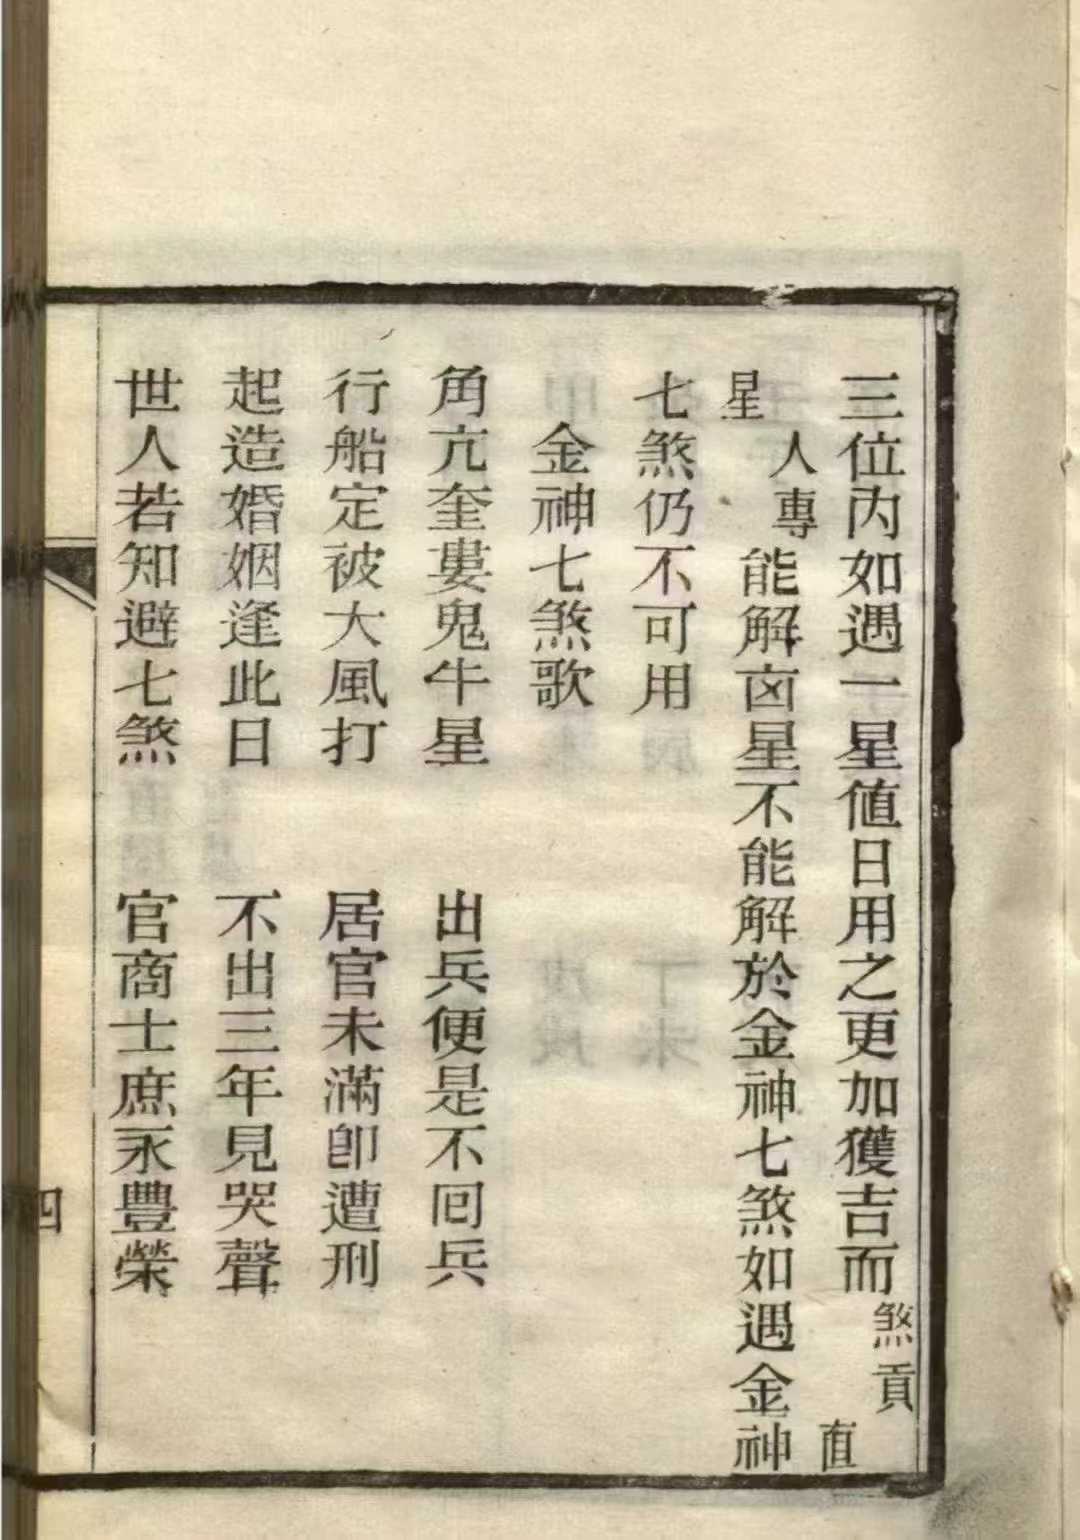 三位內如遇一星値日用之更加獲吉而煞貢直
人專星能解㐫星不能解於金神七煞如遇金神
七煞仍不可用
金神七煞歌
角亢奎婁鬼牛星　出兵便是不囘兵
行船定被大風打　居官未滿卽遭刑
起造婚姻逢此日　不出三年見哭聲
世人若知避七煞　官商士庶永豐榮
四